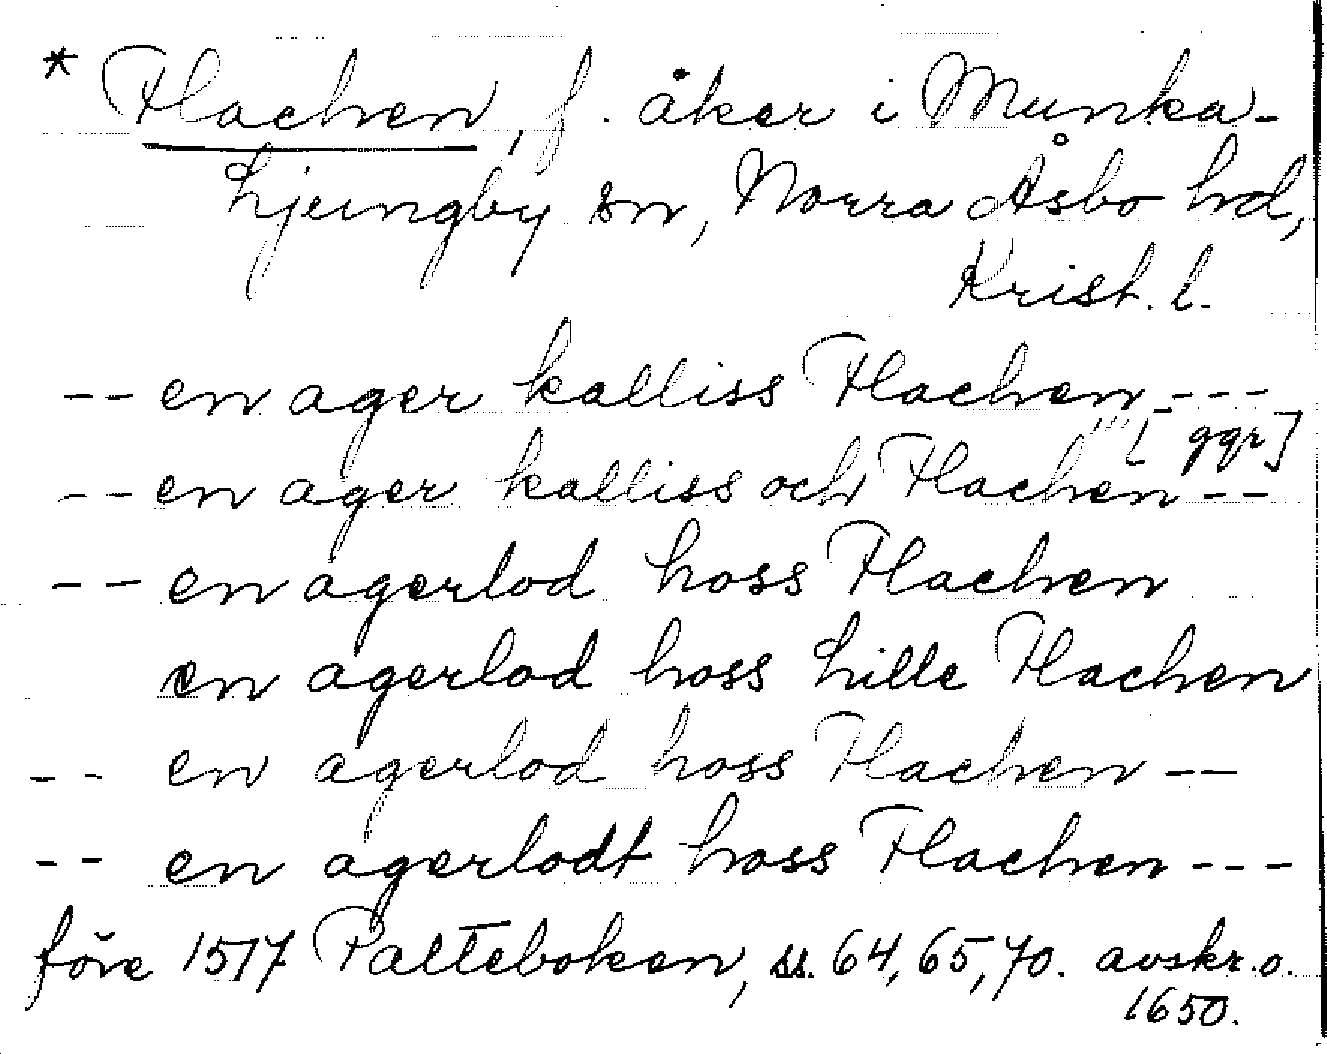 * Flachen, f. åker i Munka-
Ljungby sn, Norra Åsbo hd,
Krist. l.
-- en ager kalliss Flachen ---
[ ggr]
-- en ager kalliss och Flachen --
-- en agerlod hoss Flachen
en agerlod hoss Lille Flachen
-- en agerlod hoss Flachen --
-- en agerlodt hoss Flachen ---
före 1517 Palteboken, ss. 64, 65, 70. avskr. o.
1650.